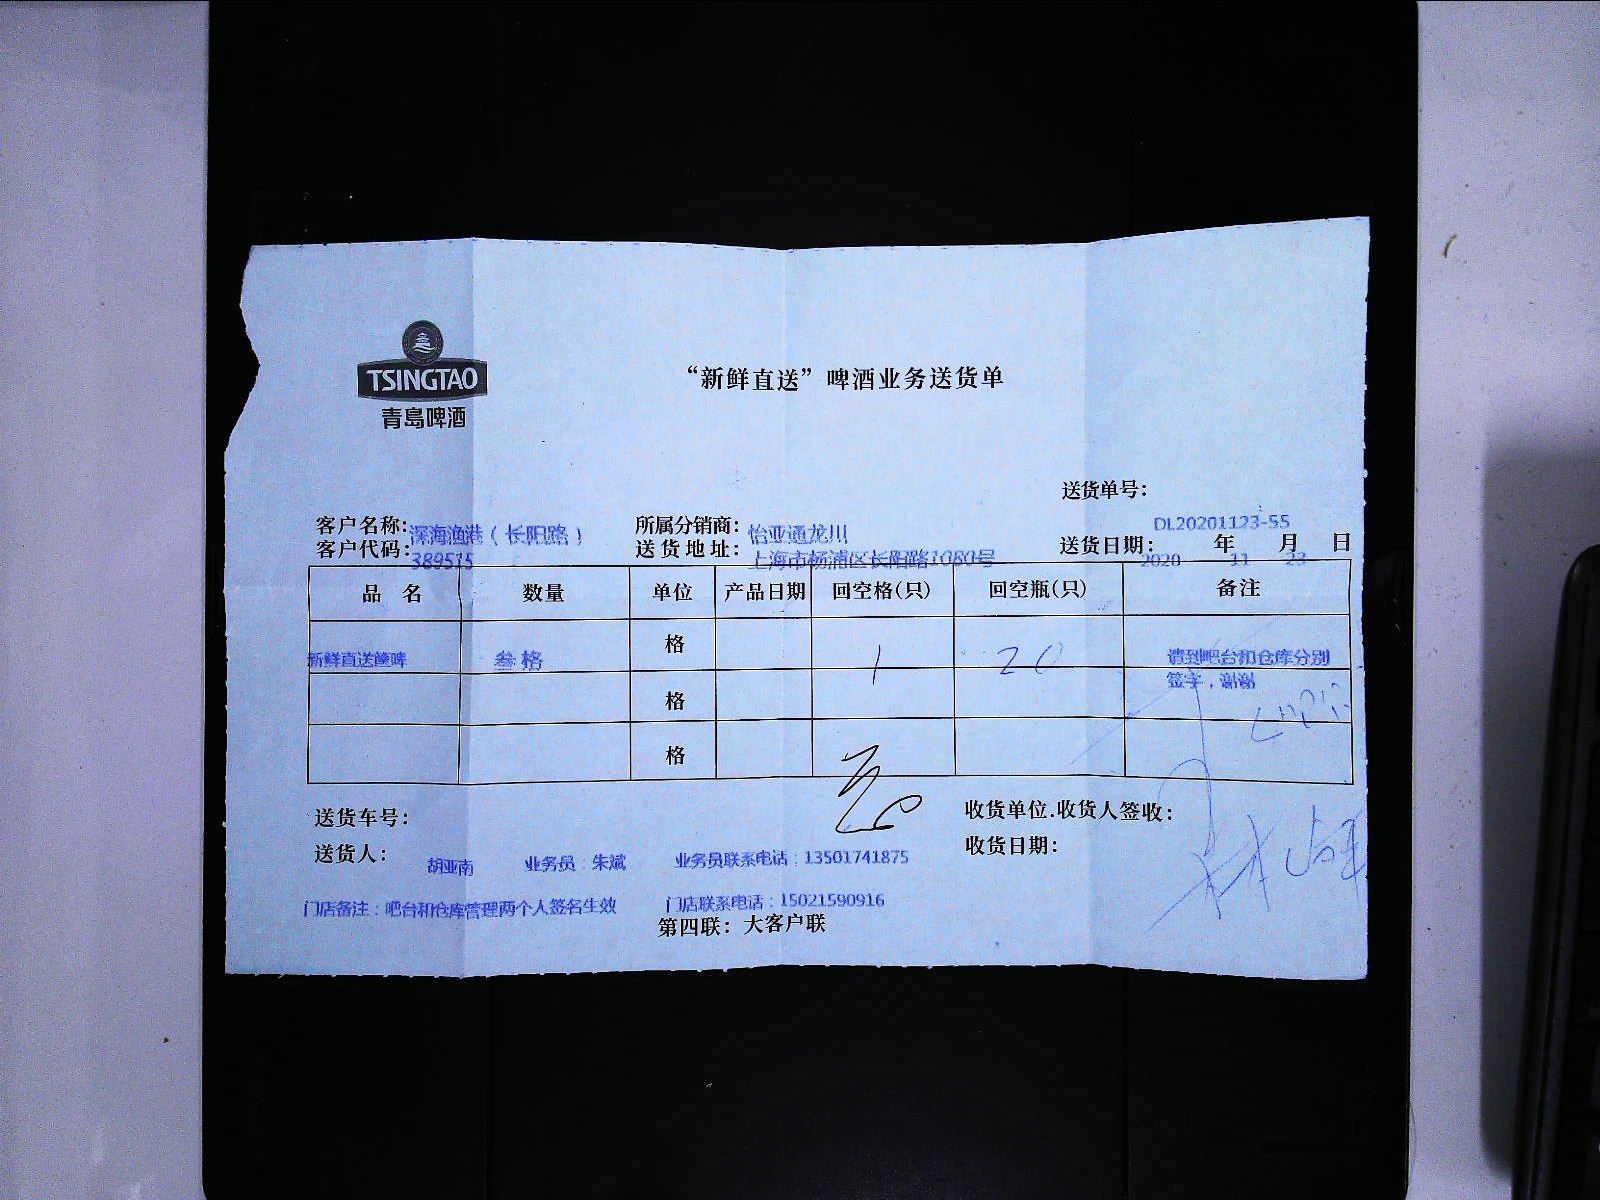 TSINGTAO
青岛啤酒
“新鲜直送”啤酒业务送货单
送货单号：
DL20201123-55
客户名称：深海渔港（长阳路） 所属分销商：怡亚通龙川
客户代码：389515 送货地址：上海市杨浦区长阳路1080号 送货日期：2020年11月23日
品 名 数量 单位 产品日期 回空格(只) 回空瓶(只) 备注
新鲜直送箧啤 叁格 格 1 20 请到吧台和仓库分别
签字，谢谢
格
格
送货车号： 收货单位.收货人签收：
送货人：胡亚南 业务员：朱斌 业务员联系电话：13501741875 收货日期：
门店备注：吧台和仓库管理两个人签名生效 门店联系电话：15021590916
第四联：大客户联